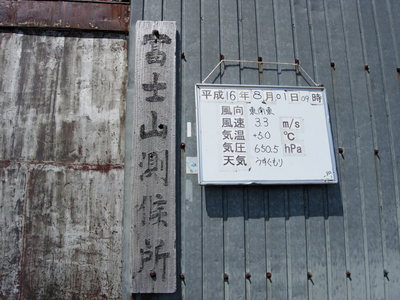 富士山測候所
平成16年8月01日09時
風向 東南東
風速 3.3 m/s
気温 +5.0 ℃
気圧 650.5 hPa
天気 うすぐもり